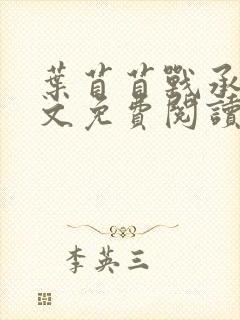 葉苜苜戰承
文免費閱讀
李英三